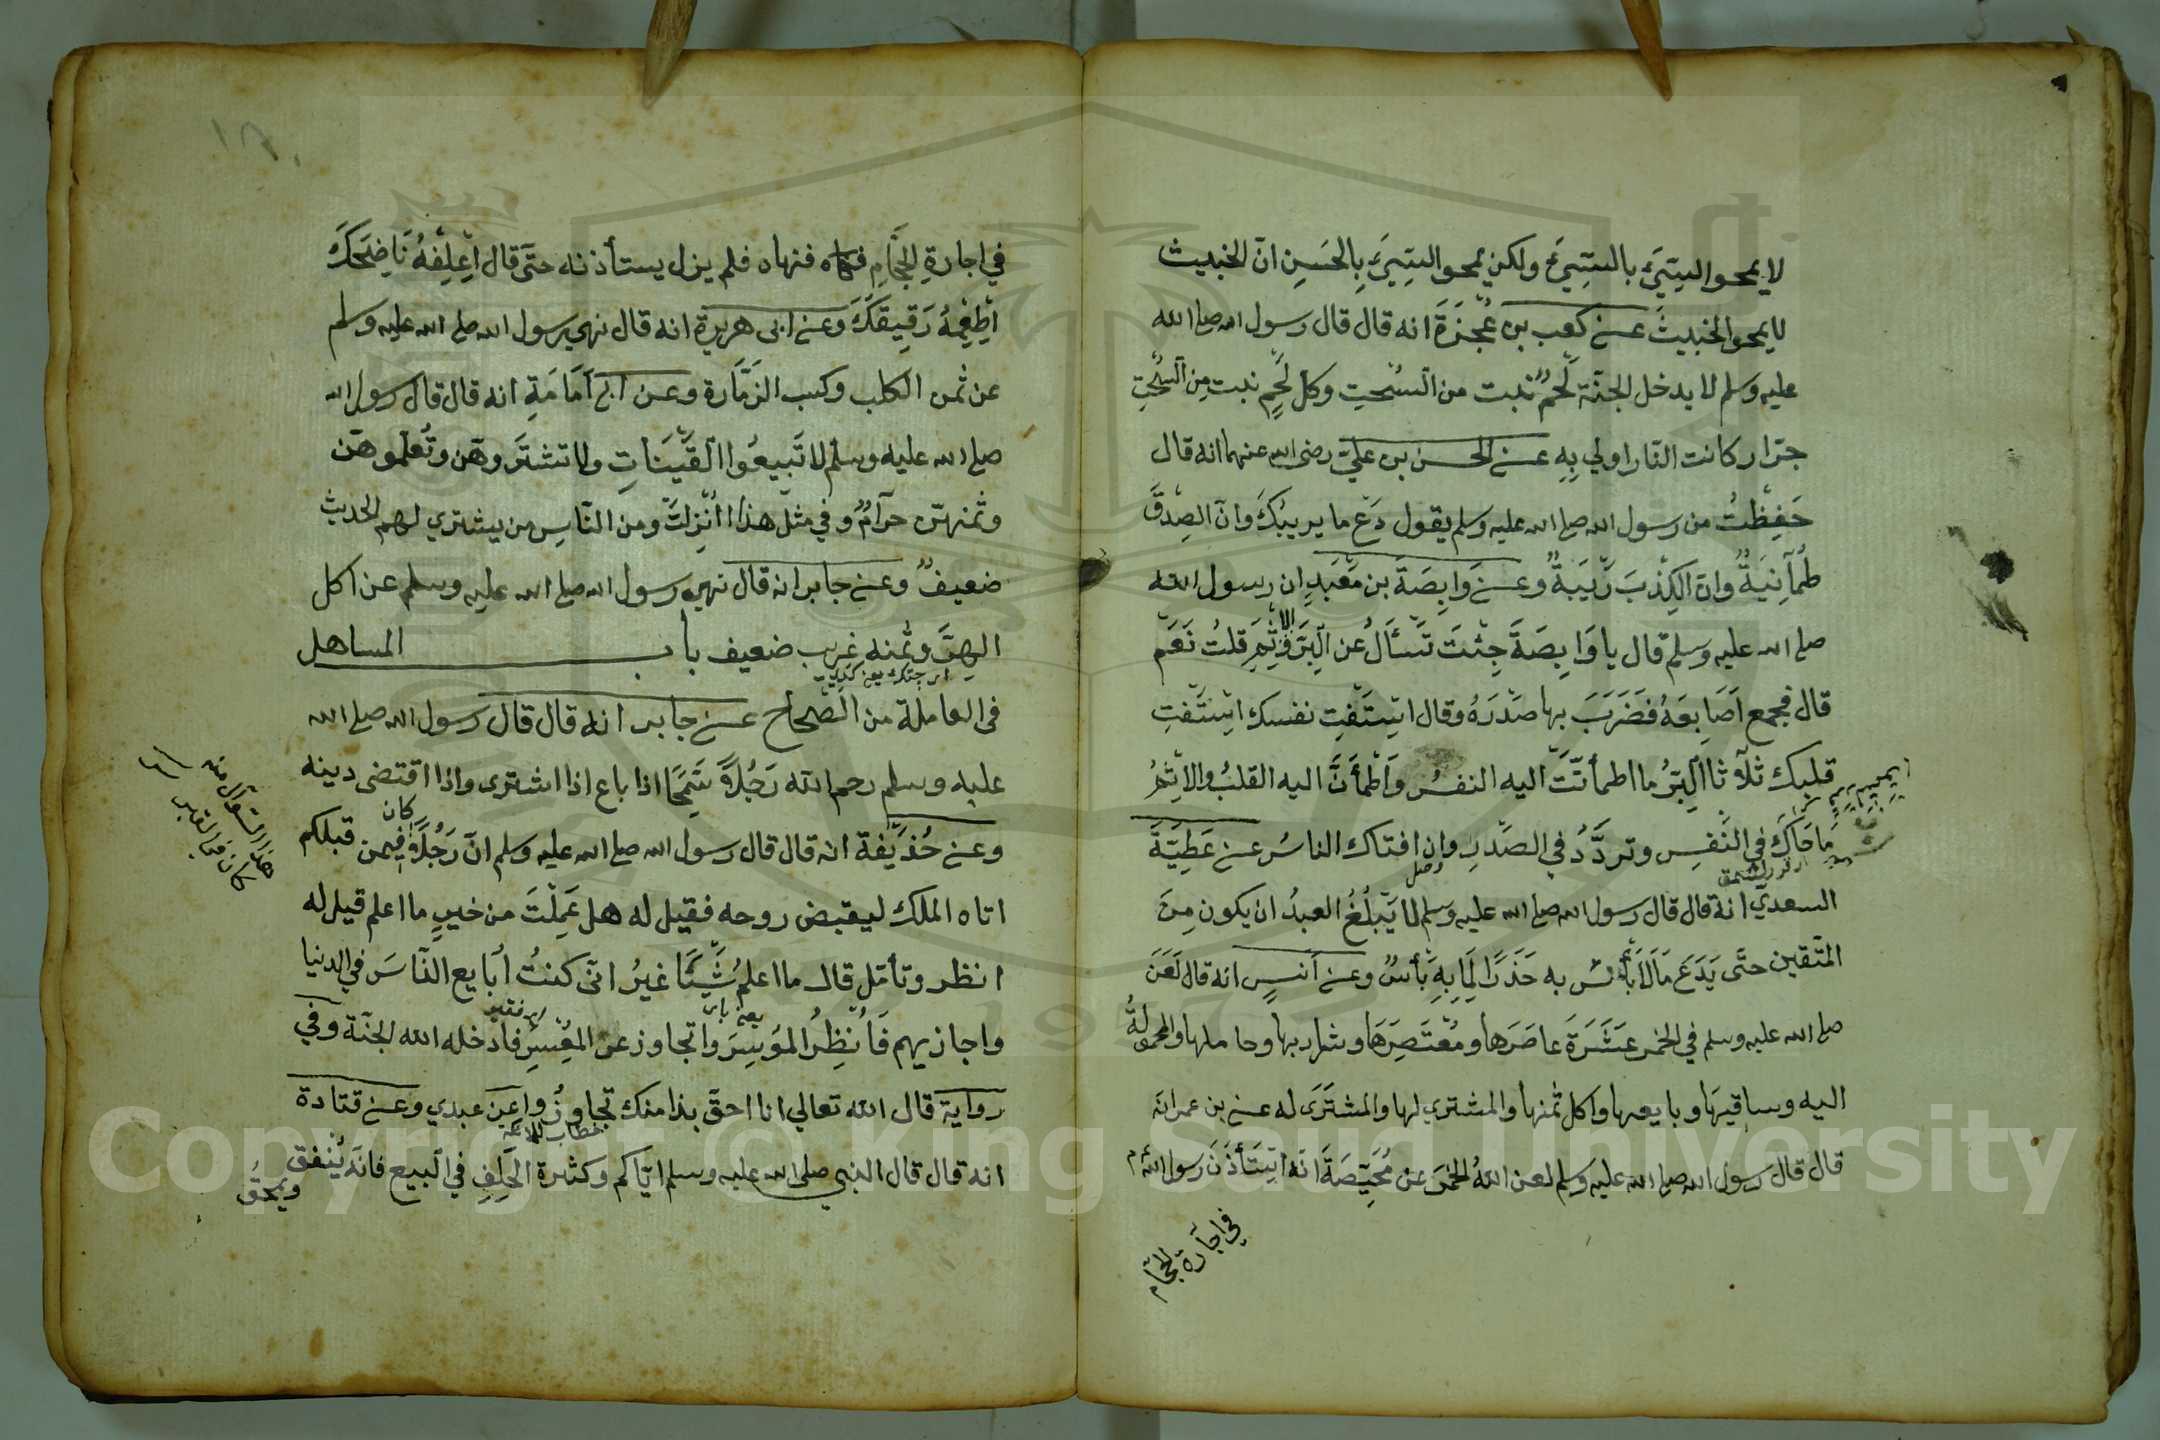 لا يمحو السيّئ بالسيّئ ولكن يمحو السيّئ بالحسن ان الخبيث
لا يمحو الخبيث عن كعب بن عجزة انه قال قال رسول الله صلى الله
عليه وسلم لا يدخل الجنّة لحم نبت من السحت وكل لحم نبت من السحت
جرّا ركانت النّار اولي به عن الحسن بن عليّ رضى الله عنهما انه قال
حفظت من رسول الله صلى الله عليه وسلم يقول دع ما يريبك وانّ الصدق
طمأنية وانّ الكذب ريبة وعن وابصة بن معبد ان رسول الله
صلى الله عليه وسلم قال يا وابصة جئت تسأل عن البرّ والاثم قلت نعم
قال فجمع اصابعه فضرب بها صدره وقال استفت نفسك استفت
قلبك ثلاثا البرّ ما اطمأنّت اليه النفس واطمأنّ اليه القلب والاثم
ما حاك في النفس وتردّد في الصدر وان افتاك الناس عن عطيّة
السعدي انه قال قال رسول الله صلى الله عليه وسلم لا يبلغ العبد ان يكون من
المتّقين حتّى يدع ما لا بأس به حذرا لما به بأس وعن انس انه قال لعن
صلى الله عليه وسلم في الخمر عشرة عاصرها ومعتصرها وشاربها وحاملها والمحمولة
اليه وساقيها وبايعها واكل ثمنها والمشتري لها والمشترى له عن بن عمر انّه
قال قال رسول الله صلى الله عليه وسلم لعن الله الخمر عن محيّصة انّه استأذن رسول الله
في اجارة الحجّام
١٨٠
في اجارة الحجّام فنهاه فلم يزل يستأذنه حتّى قال اعلفه ناضحك
اطعمه رقيقك وعن ابى هريرة انه قال نهى رسول الله صلى الله عليه وسلم
عن ثمن الكلب وكسب الزمّارة وعن ابي امامة انه قال قال رسول الله
صلى الله عليه وسلم لا تبيعوا القينات ولا تشتروهنّ وتعلّموهنّ
وثمنهنّ حرام وفي مثل هذا انزلت ومن النّاس من يشتري لهم الحديث
ضعيف وعن جابر انه قال نهى رسول الله صلى الله عليه وسلم عن اكل
الهرّ وثمنه غريب ضعيف باب المساهل
فى العاملة من الصحاح عن جابر انه قال قال رسول الله صلى الله
عليه وسلم رحم الله رجلا سمحا اذا باع اذا اشترى واذا اقتضى دينه
وعن حذيفة انه قال قال رسول الله صلى الله عليه وسلم انّ رجلا كان فيمن قبلكم
اتاه الملك ليقبض روحه فقيل له هل عملت من خير ما اعلم قيل له
انظر وتأمّل قال ما اعلم شيئا غير انّى كنت أبايع النّاس في الدنيا
واجازيهم فانظر الموسر واتجاوز عن المعسر فادخله الله الجنّة وفي
رواية قال الله تعالي انا احقّ بذا منك تجاوزوا عن عبدي وعن قتادة
انه قال قال النبي صلى الله عليه وسلم ايّاكم وكثرة الحلف في البيع فانّه ينفق
ويمحق
هذا السّؤال منه
كان في القبر